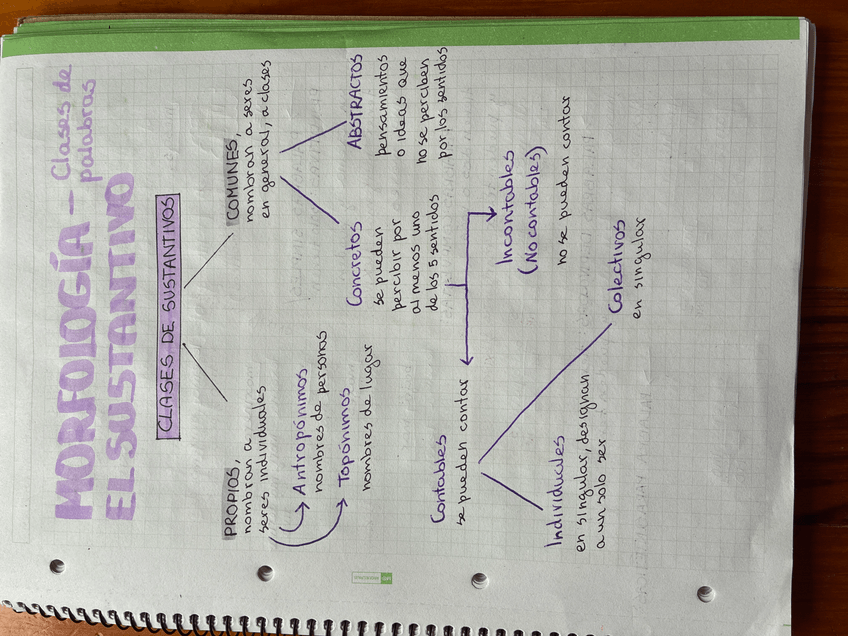 MORFOLOGÍA – Clases de
palabras
EL SUSTANTIVO
CLASES DE SUSTANTIVOS
PROPIOS,
nombran a
seres individuales
Antropónimos
nombres de personas
Topónimos
nombres de lugar
COMUNES,
nombran a seres
en general, a clases
Concretos
se pueden
percibir por
al menos uno
de los 5 sentidos
ABSTRACTOS
pensamientos
o ideas que
no se perciben
por los sentidos
Contables
se pueden contar
Incontables
(No contables)
no se pueden contar
Individuales
en singular, designan
a un solo ser
Colectivos
en singular